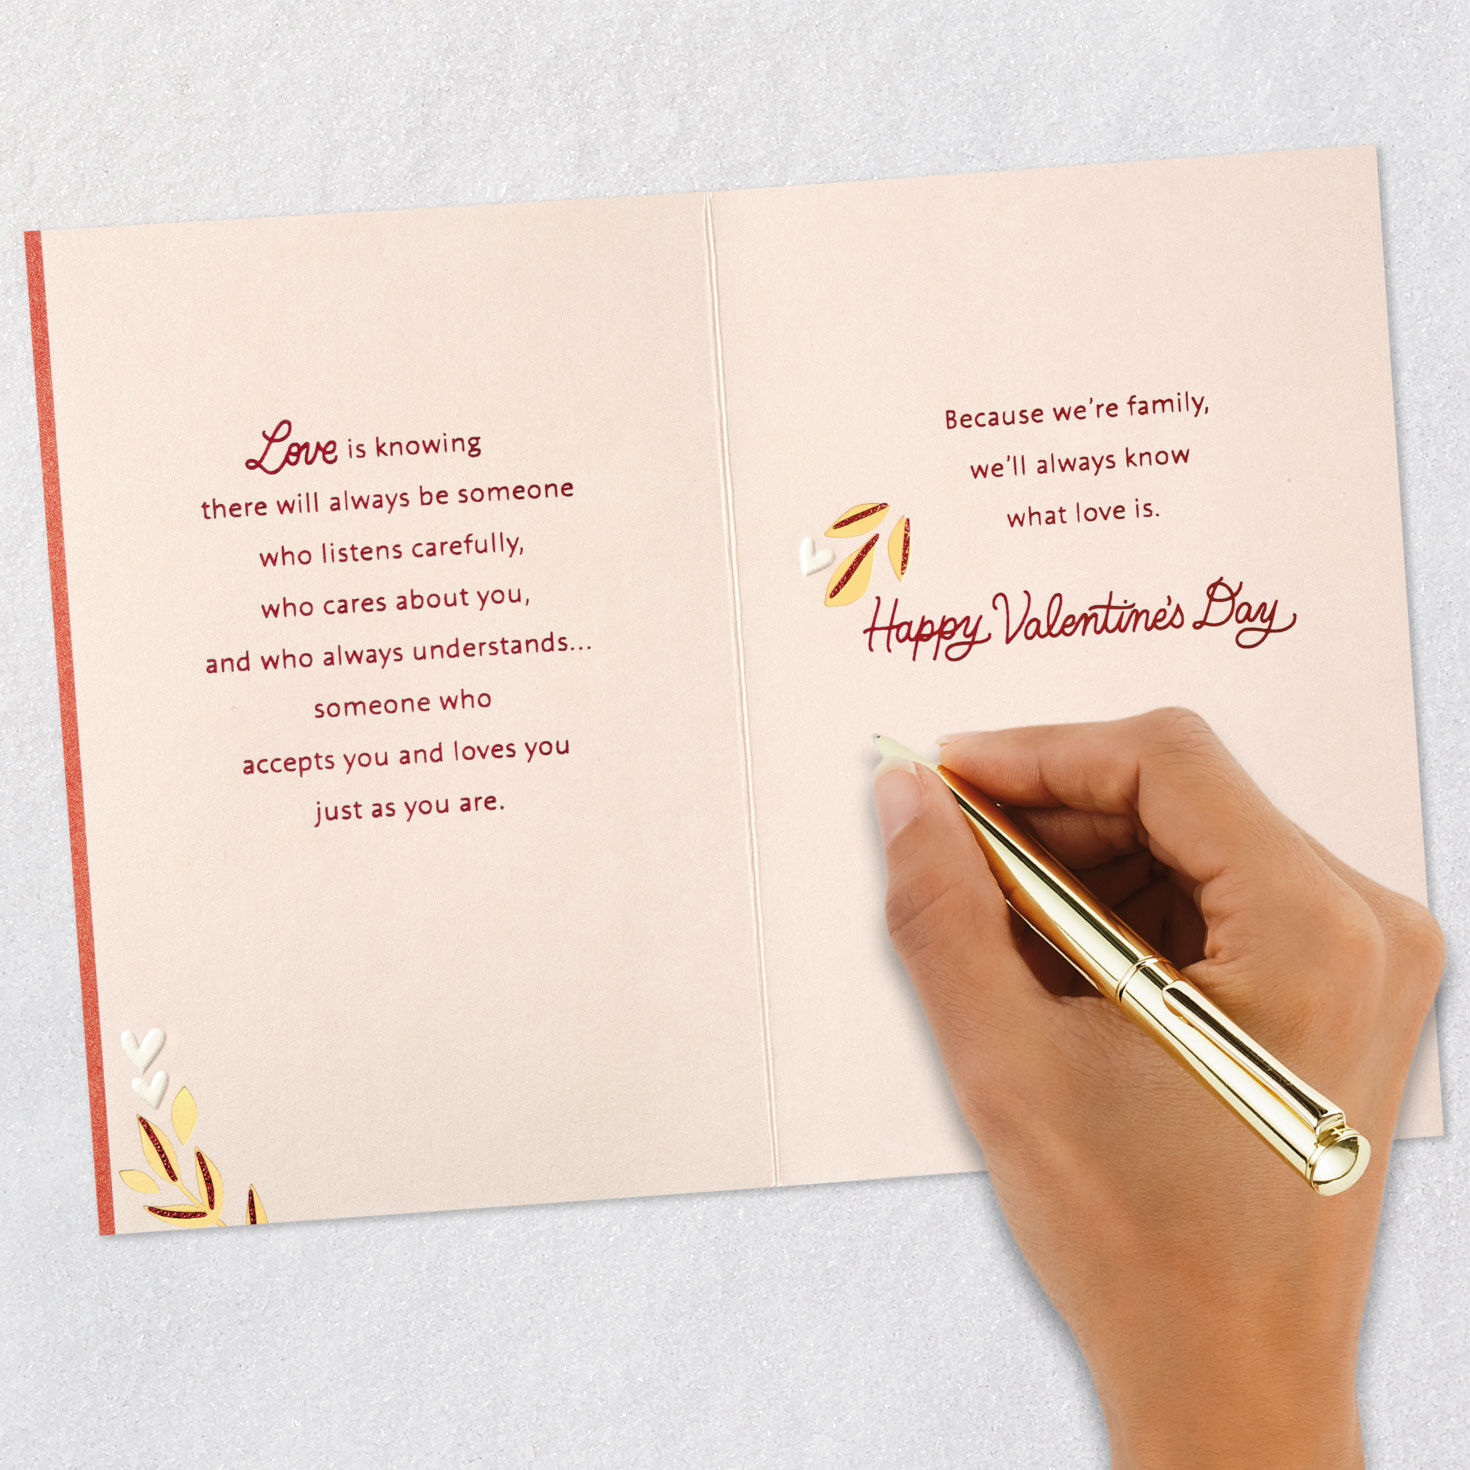 Love is knowing
there will always be someone
who listens carefully,
who cares about you,
and who always understands...
someone who
accepts you and loves you
just as you are.
Because we're family,
we'll always know
what love is.
Happy Valentine's Day